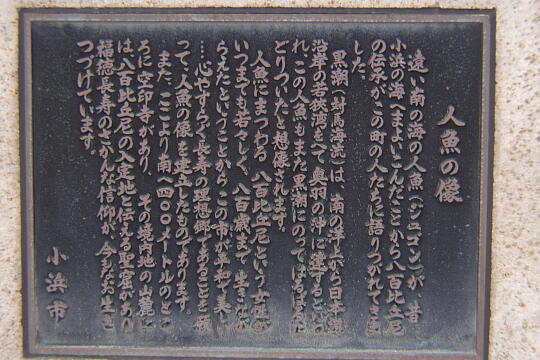 人魚の像
遠い南の海の人魚(ジュゴン)が、昔
小浜の海へまよいこんだことから八百比丘尼
の伝承がこの町の人たちに語りつがれてきま
した。
黒潮(対馬海流)は、南の沖から日本海
沿岸の若狭湾をへて、奥羽の沖に達するといわ
れ、この人魚もまた黒潮にのってはるばるた
どりついたと想像されます。
人魚にまつわる八百比丘尼という女性が
いつまでも若々しく、八百歳まで生きなが
らえたということから、この市が平和で美しい
心やすらぐ長寿の理想郷であることを願
って、人魚の像を建立したものであります。
また、ここより南へ四〇〇メートルのとこ
ろに空印寺があり、その境内地の山麓に
は八百比丘尼の入定地と伝える聖窟があり
福徳長寿のさかんな信仰が、今なお生き
つづけています。
小浜市